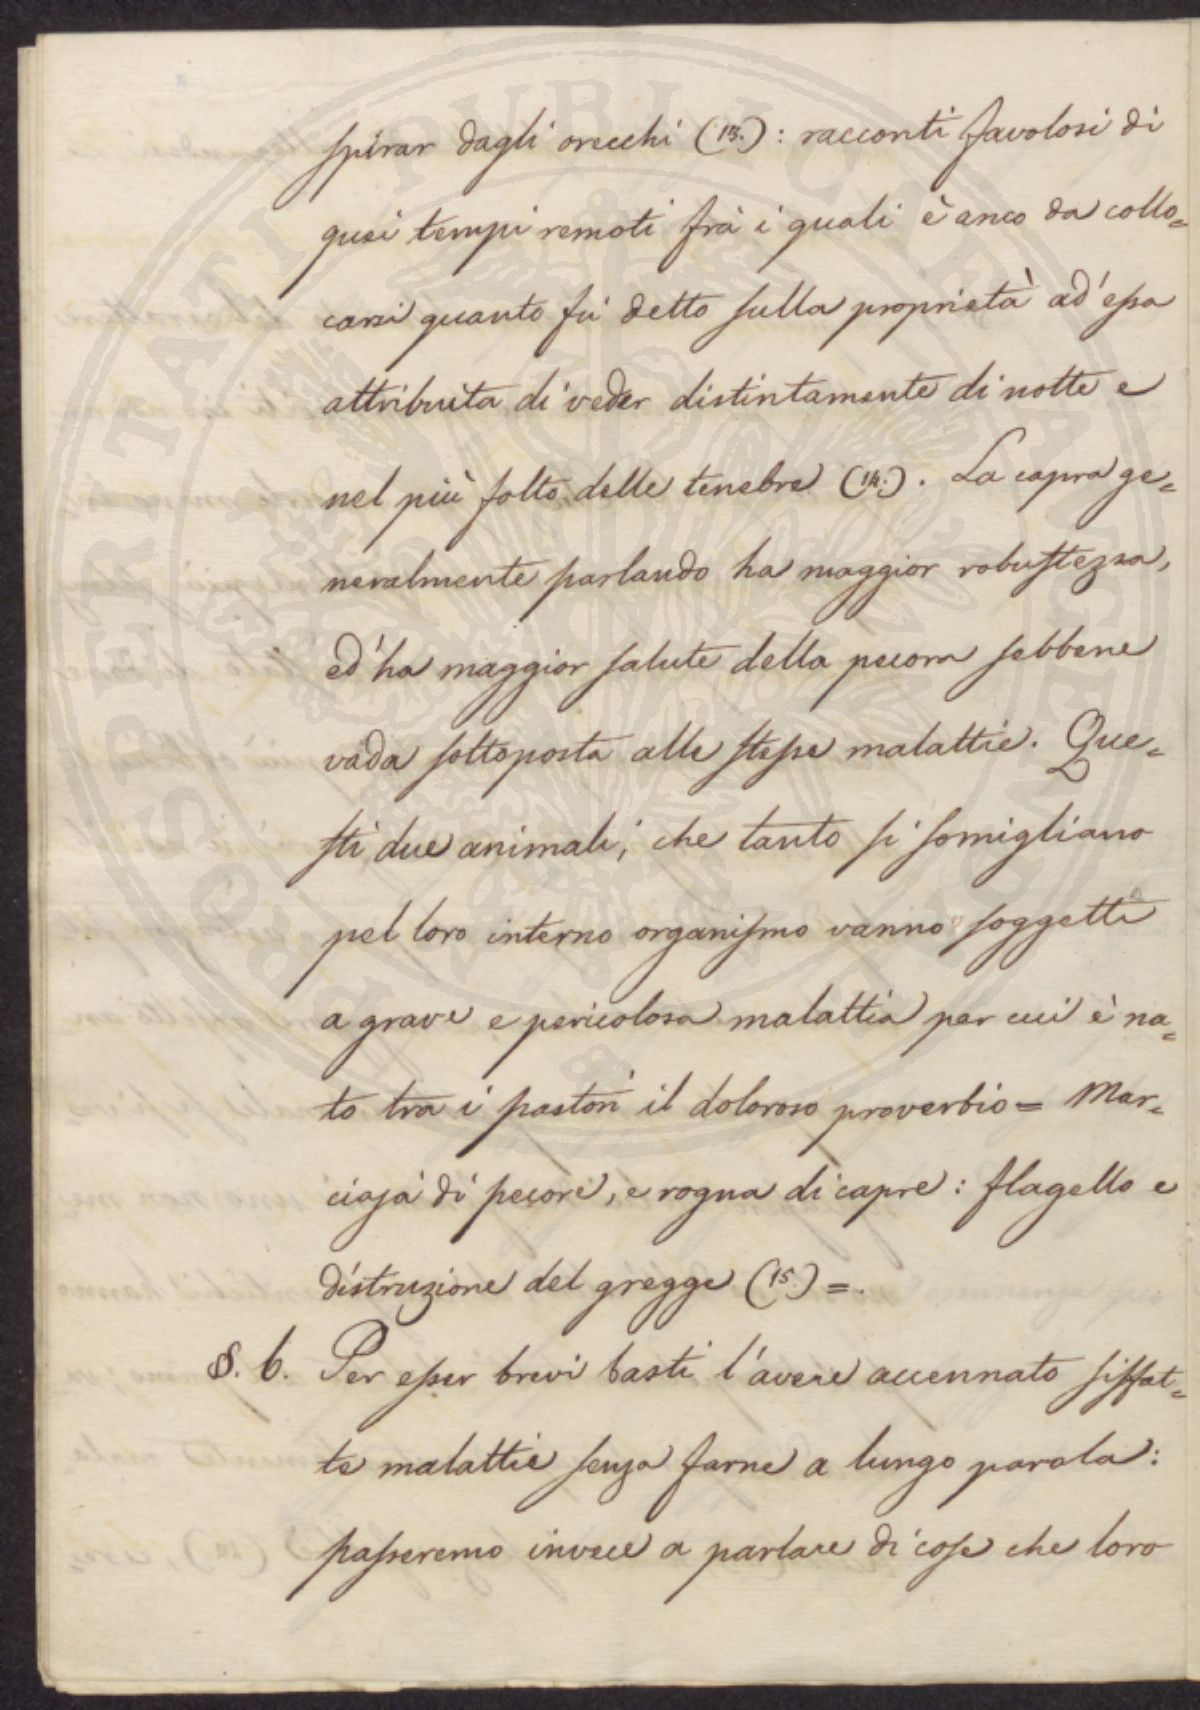 spirar dagli orecchi (13.): racconti favolosi di
quei tempi remoti frà i quali è anco da collo=
carsi quanto fù detto sulla proprietà ad'essa
attribuita di veder distintamente di notte e
nel più folto delle tenebre (14.). La capra ge=
neralmente parlando ha maggior robustezza,
ed'ha maggior salute della pecora sebbene
vada sottoposta alle stesse malattie. Que=
sti due animali, che tanto si somigliano
pel loro interno organismo vanno soggetti
a grave e pericolosa malattia per cui è na=
to tra i pastori il doloroso proverbio = Mar=
ciaja di pecore, e rogna di capre: flagello e
distruzione del gregge (15.) =.
§. 6. Per esser brevi basti l'avere accennato siffat=
te malattie senza farne a lungo parola:
passeremo invece a parlare di cose che loro
PROSPERITATI PUBLICAE AUGENDAE